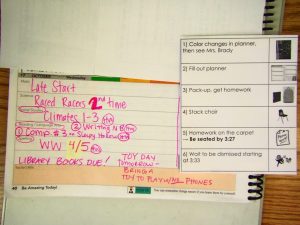 OCTOBER Wednesday
Late Start
Rared Racers 2nd time
Climates 1-3
② Writing N.B.
① Comp. #3
WW 4/5
LIBRARY BOOKS DUE!
TOY DAY
TOMORROW -
BRING A
TOY TO PLAY w/ NO PHONES
40 Be Amazing Today!
1) Color changes in planner, then see Mrs. Brady
2) Fill out planner
3) Pack-up, get homework
4) Stack chair
5) Homework on the carpet
— Be seated by 3:27
6) Wait to be dismissed starting at 3:33